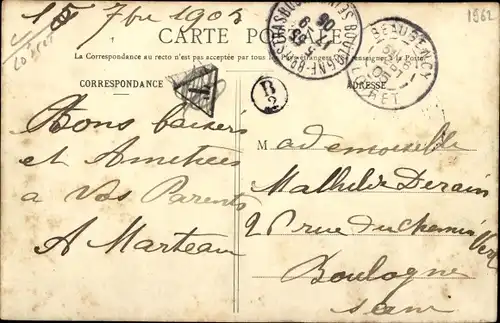 15 7bre 1905
1962
CARTE POSTALE
La Correspondance au recto n'est pas acceptée par tous les pays étrangers. (Se renseigner à la Poste)
CORRESPONDANCE
ADRESSE
BEAUGENCY
LOIRET
T
B
2
Bons baisers
et Amitiées
à Vos Parents
A Marteau
Mademoiselle
Mathilde Derain
2 rue du Chemin Vert
Boulogne
Seine